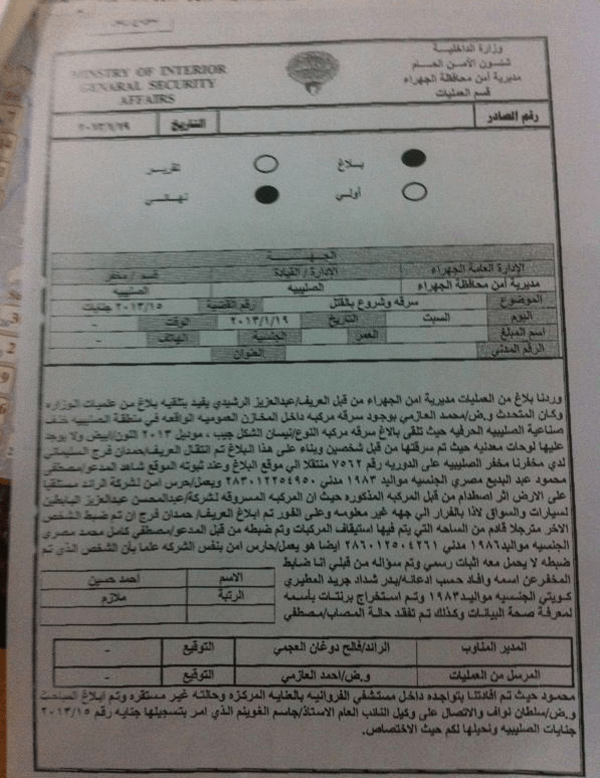 وزارة الداخلية
شئون الأمن العام
مديرية أمن محافظة الجهراء
قسم العمليات
MINISTRY OF INTERIOR
GENARAL SECURITY
AFFAIRS
رقم الصادر التاريخ ٢٠١٣/١/١٩
بلاغ تقرير
أولي نهائي
الجهة
الإدارة العامة الجهراء الادارة / القيادة قسم / مخفر
مديرية أمن محافظة الجهراء الصليبيه الصليبيه
الموضوع سرقه وشروع بالقتل رقم القضية ٢٠١٣/١٥ جنايات
اليوم السبت التاريخ ٢٠١٣/١/١٩ الوقت -
اسم المبلغ العمر الجنسية الهاتف -
الرقم المدني العنوان
وردنا بلاغ من العمليات مديرية امن الجهراء من قبل العريف/عبدالعزيز الرشيدي يفيد بتلقيه بلاغ من عمليات الوزاره
وكان المتحدث و.ض/محمد العازمي بوجود سرقه مركبه داخل المخازن العموميه الواقعه في منطقة الصليبيه خلف
صناعية الصليبيه الحرفيه حيث تلقى بالاغ سرقه مركبه النوع/نيسان الشكل جيب ، موديل ٢٠١٣ اللون/ابيض ولا يوجد
عليها لوحات معدنيه حيث تم سرقتها من قبل شخصين وبناء على هذا البلاغ تم انتقال العريف/حمدان فرج السليماني
لدي مخفرنا مخفر الصليبيه على الدوريه رقم ٧٥٦٢ منتقلا الي موقع البلاغ وعند ثبوته الموقع شاهد المدعو/مصطفي
محمود عبد البديع مصري الجنسيه مواليد ١٩٨٣ مدني ٢٨٣٠١٢٢٥٤٩٥٠ ويعمل/حارس امن لشركة الرائد مستلقيا
على الارض اثر اصطدام من قبل المركبه المذكوره حيث ان المركبه المسروقه لشركة/عبدالمحسن عبدالعزيز البابطين
لسيارات والسواق لاذا بالفرار الي جهه غير معلومه وعلى الفور تم ابلاغ العريف/حمدان فرج ان تم ضبط الشخص
الاخر مترجلا قادم من الساحه التي يتم فيها استيقاف المركبات وتم ضبطه من قبل المدعو/مصطفي كامل محمد مصري
الجنسيه مواليد١٩٨٦ مدني ٢٨٦٠١٢٥٠٤٢٦١ ايضا هو يعمل/حارس امن بنفس الشركه علما بأن الشخص الذي تم
ضبطه لا يحمل معه اثبات رسمي وتم سؤاله من قبلي انا ضابط
المخفرعن اسمه وافاد حسب ادعائه/بدر شداد جريد المطيري
كويتي الجنسيه مواليد١٩٨٣ وتم استخراج برنتات بأسمه
لمعرفة صحة البيانات وكذلك تم تفقد حالة المصاب/مصطفي
الاسم أحمد حسين
الرتبة ملازم
المدير المناوب الرائد/فالح دوغان العجمي التوقيع -
المرسل من العمليات و.ض/احمد العازمي التوقيع -
محمود حيث تم افادتنا بتواجده داخل مستشفي الفروانيه بالعنايه المركزه وحالته غير مستقره وتم ابلاغ المباحث
و.ض/سلطان نواف والاتصال على وكيل النائب العام الاستاذ/جاسم الغوينم الذي امر بتسجيلها جنايه رقم ٢٠١٣/١٥
جنايات الصليبيه ونحيلها لكم حيث الاختصاص.